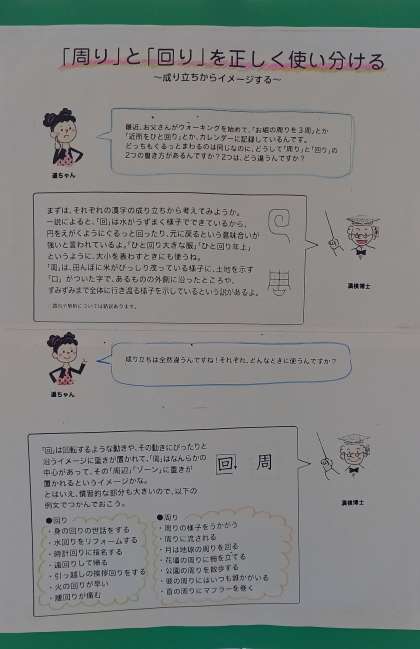 「周り」と「回り」を正しく使い分ける
〜成り立ちからイメージする〜
最近、お父さんがウォーキングを始めて、「お城の周りを3周」とか
「近所をひと回り」とか、カレンダーに記録しているんです。
どっちもくるっとまわるのは同じなのに、どうして「周り」と「回り」の
2つの書き方があるんですか？2つは、どう違うんですか？
漢ちゃん
まずは、それぞれの漢字の成り立ちから考えてみようか。
一説によると、「回」は水がうずまく様子でできているから、
円をえがくようにぐるっと回ったり、元に戻るという意味合いが
強いと言われているよ。「ひと回り大きな服」「ひと回り年上」
というように、大小を表わすときにも使うね。
「周」は、田んぼに米がびっしり茂っている様子に、土地を示す
「口」がついた字で、あるものの外側に沿ったところや、
すみずみまで全体に行き渡る様子を示しているという説があるよ。
漢検博士
成り立ちは全然違うんですね！それぞれ、どんなときに使うんですか？
漢ちゃん
「回」は回転するような動きや、その動きにぴったりと
沿うイメージに重きが置かれて、「周」はなんらかの
中心があって、その「周辺」「ゾーン」に重きが
置かれるというイメージかな。
とはいえ、慣習的な部分も大きいので、以下の
例文でつかんでおこう。
回 周
漢検博士
●回り
・身の回りの世話をする
・水回りをリフォームする
・時計回りに指名する
・遠回りして帰る
・引っ越しの挨拶回りをする
・火の回りが早い
・腰回りが痛む
●周り
・周りの様子をうかがう
・周りに流される
・月は地球の周りを回る
・花壇の周りに柵を立てる
・公園の周りを散歩する
・彼の周りにはいつも誰かがいる
・首の周りにマフラーを巻く